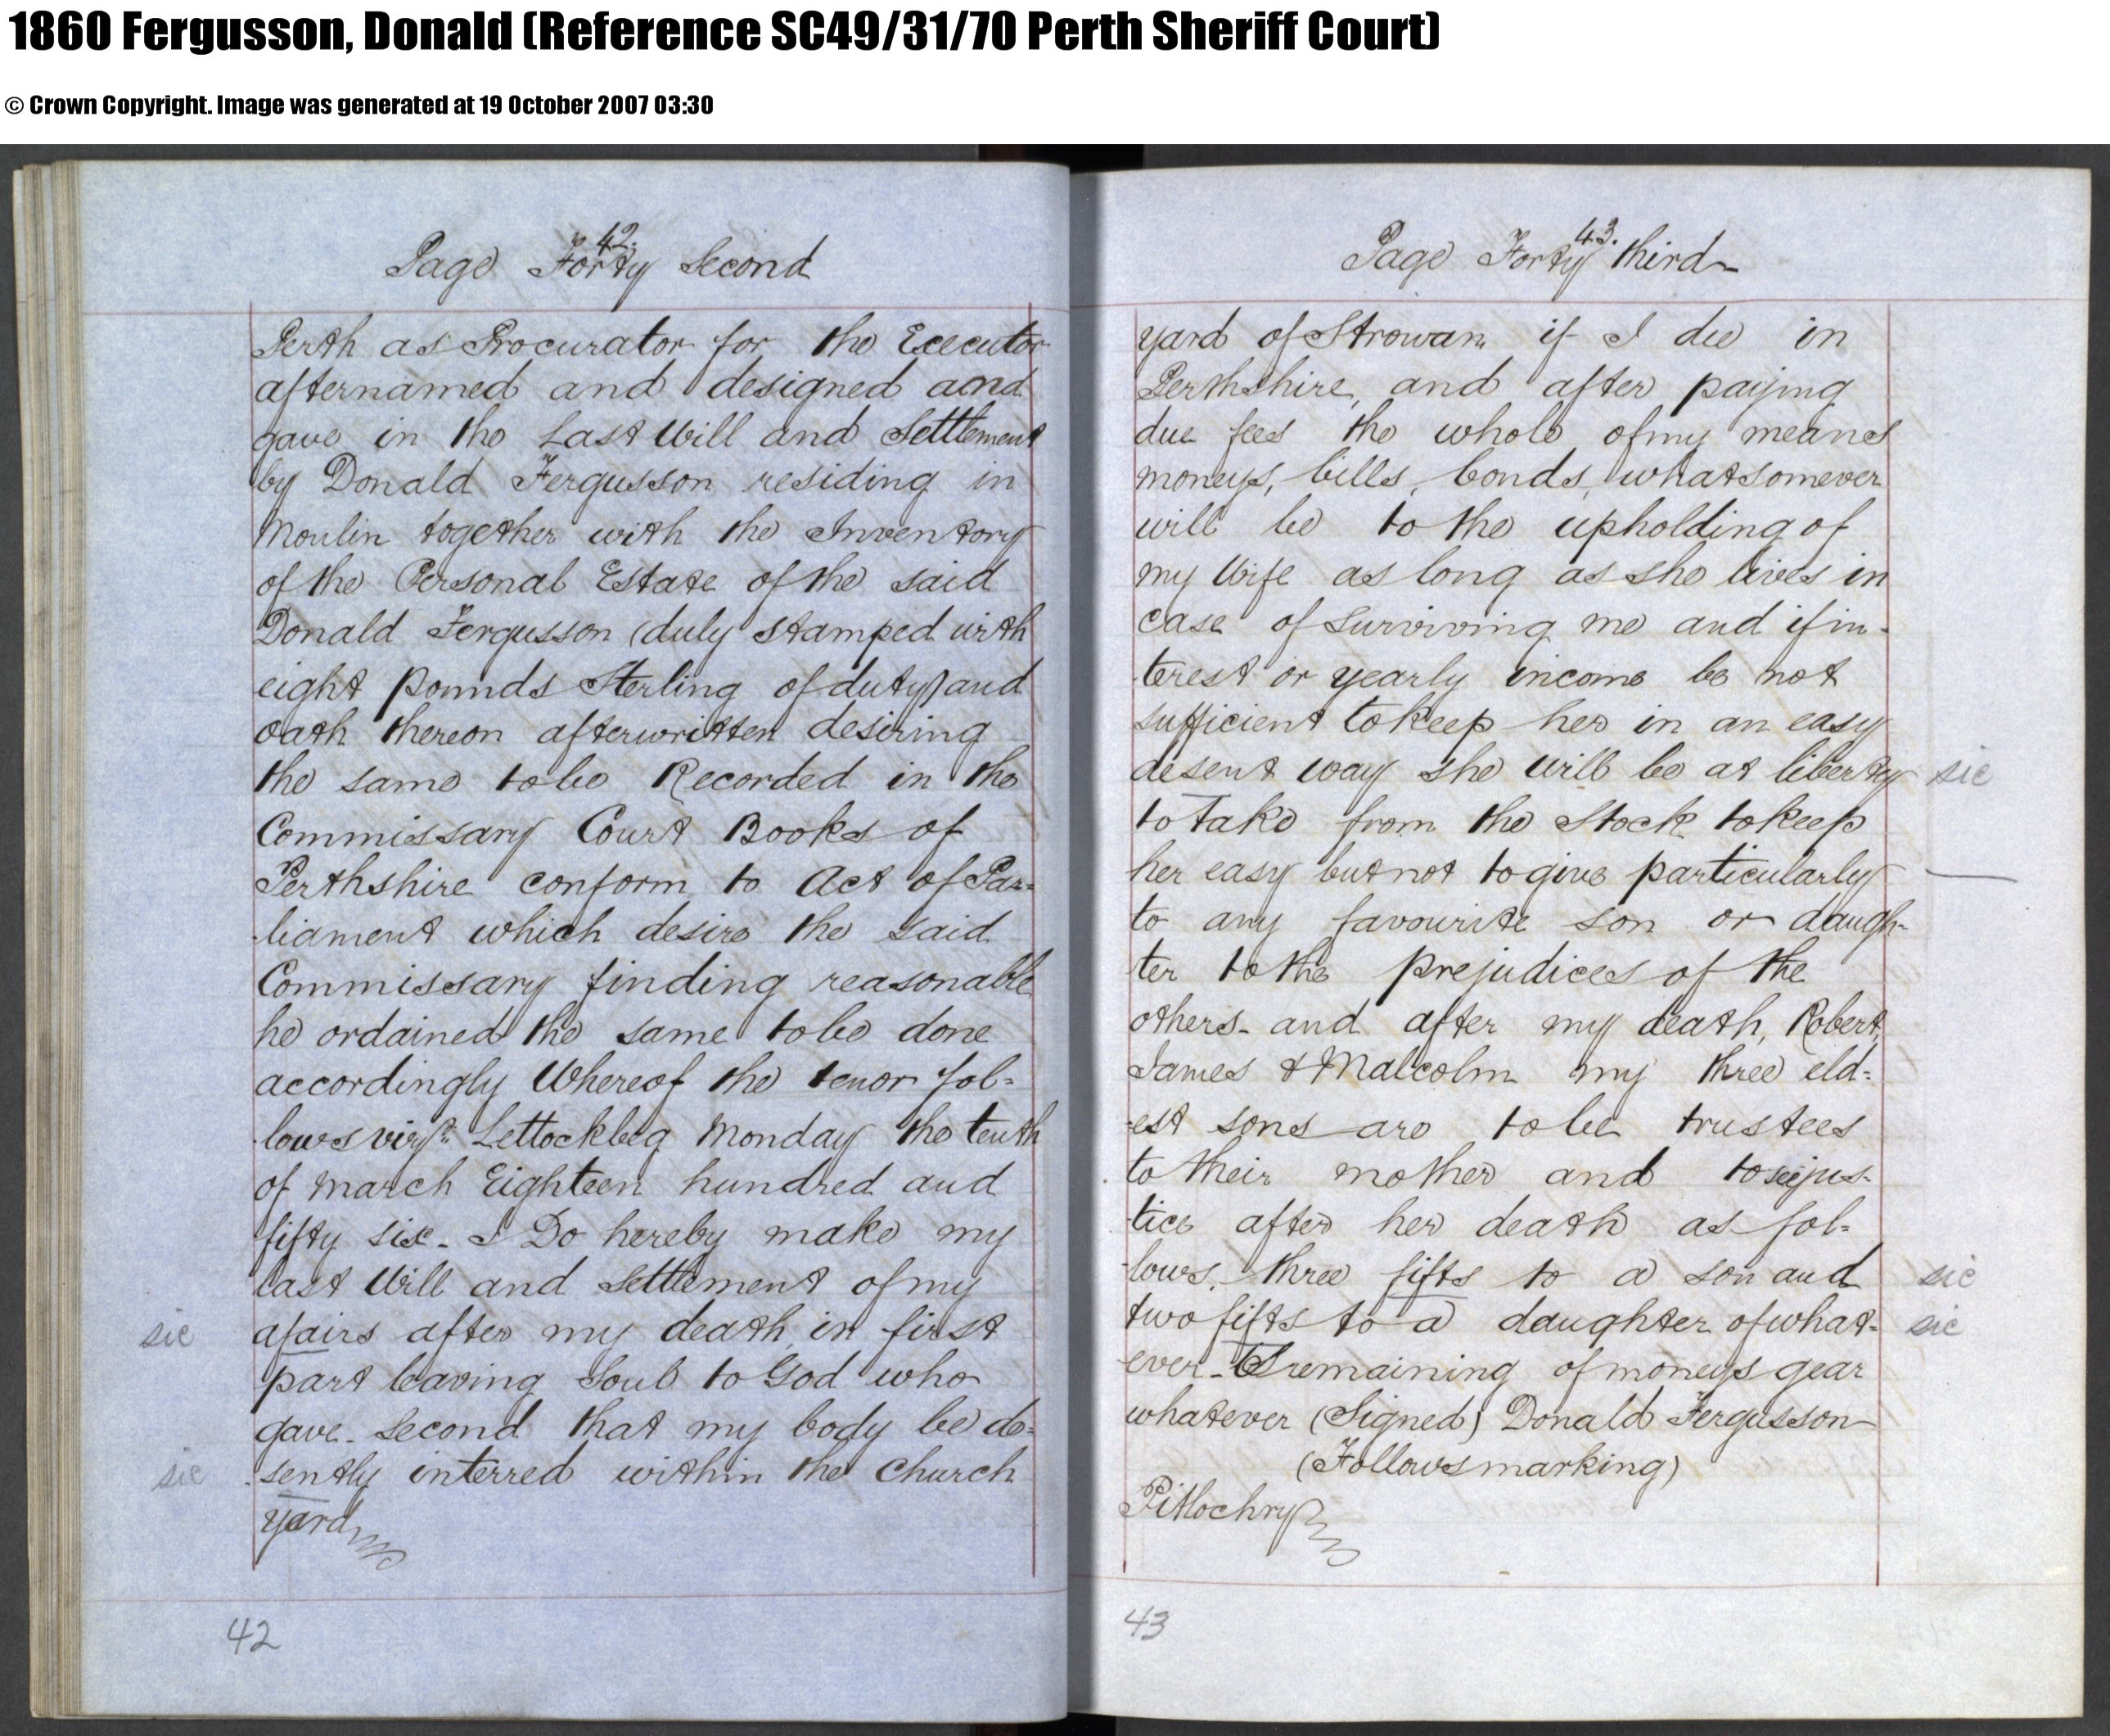 1860 Fergusson, Donald (Reference SC49/31/70 Perth Sheriff Court)
© Crown Copyright. Image was generated at 19 October 2007 03:30
42.
Page Forty Second
Perth as Procurator for the Executor
afternamed and designed and
gave in the Last Will and Settlement
by Donald Fergusson residing in
Moulin together with the Inventory
of the Personal Estate of the said
Donald Fergusson (duly stamped with
eight pounds Sterling of duty) and
oath thereon afterwritten desiring
the same to be Recorded in the
Commissary Court Books of
Perthshire conform to Act of Par=
liament which desire the said
Commissary finding reasonable
he ordained the same to be done
accordingly Whereof the tenor fol=
lows vizt. Lettockbeg Monday the tenth
of March Eighteen hundred and
fifty six - I Do hereby make my
last Will and Settlement of my
sic afairs after my death, in first
part leaving Soul to God who
gave. Second that my body be de=
sic sently interred within the Church
yard
42
43.
Page Forty third
yard of Strowan if I die in
Perthshire, and after paying
due fees the whole of my means
moneys, bills, bonds, whatsomever
will be to the upholding of
my Wife as long as she lives in
case of surviving me and if in-
terest or yearly income be not
sufficient to keep her in an easy
desent way she will be at liberty sic
to take from the Stock to keep
her easy but not to give particularly
to any favourite son or daugh-
ter to the prejudices of the
others - and after my death, Robert,
James & Malcolm my three eld=
est sons are to be trustees
to their mother and to see jus-
tice after her death as fol=
lows, three fifts to a son and sic
two fifts to a daughter of what- sic
ever remaining of moneys gear
whatever (Signed) Donald Fergusson
(Follows marking)
Pitlochry
43